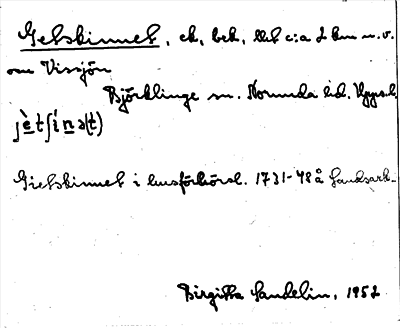 Getskinnet, ek, bek, llet c:a 2 km n.v.
om Vissjön
Björklinge sn. Norunda hd. Uppsal.
Gietskinnet i husförhörsl. 1731-48 å Landsark.
Birgitta Sandelin, 1952